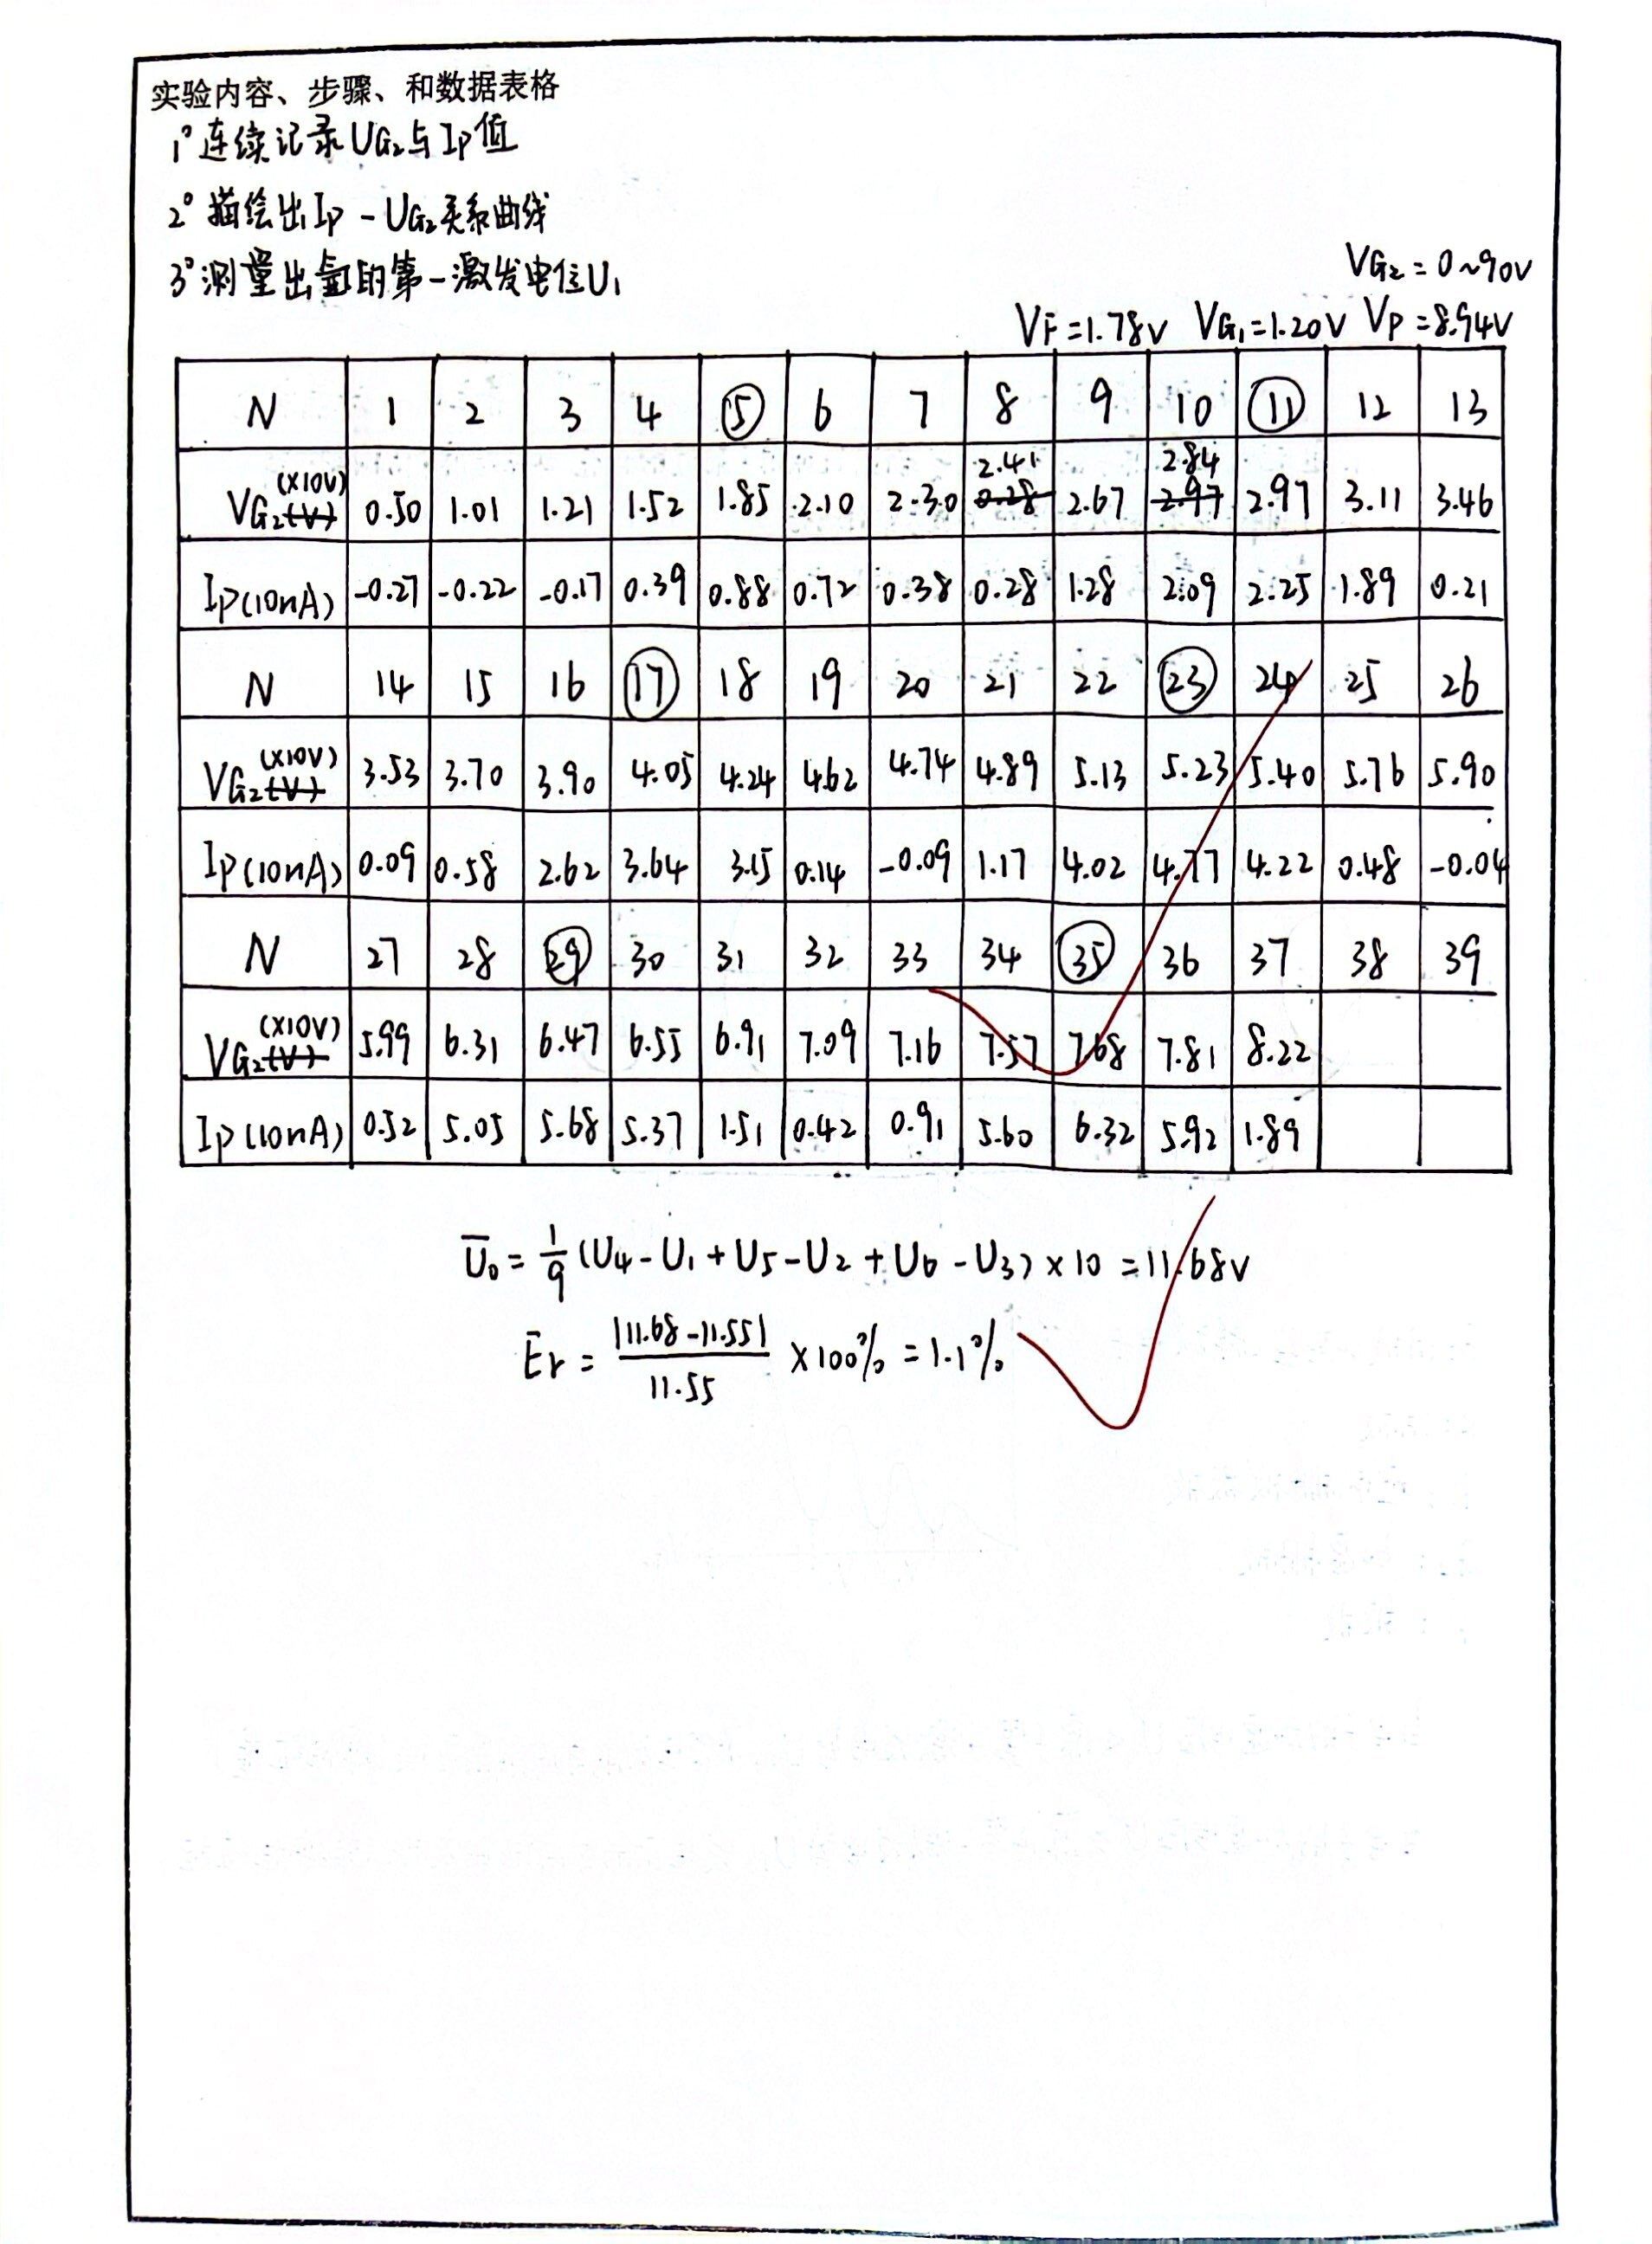 实验内容、步骤、和数据表格
1° 连续记录UG₂与Ip值
2° 描绘出Ip - UG₂关系曲线
3° 测量出氩的第一激发电位U₁
VG₂ = 0~90V
VF = 1.78V VG₁ = 1.20V Vp = 8.94V
N 1 2 3 4 ⑤ 6 7 8 9 10 ⑪ 12 13
VG₂ (V) (×10V) 0.50 1.01 1.21 1.52 1.85 2.10 2.30 0.28 2.41 2.67 2.97 2.84 2.97 3.11 3.46
Ip(10nA) -0.27 -0.22 -0.17 0.39 0.88 0.72 0.38 0.28 1.28 2.09 2.25 1.89 0.21
N 14 15 16 ⑰ 18 19 20 21 22 ㉓ 24 25 26
VG₂ (V) (×10V) 3.53 3.70 3.90 4.05 4.24 4.62 4.74 4.89 5.13 5.23 5.40 5.76 5.90
Ip(10nA) 0.09 0.58 2.62 3.64 3.15 0.14 -0.09 1.17 4.02 4.77 4.22 0.48 -0.04
N 27 28 ㉙ 30 31 32 33 34 ㉟ 36 37 38 39
VG₂ (V) (×10V) 5.99 6.31 6.47 6.55 6.91 7.09 7.16 7.57 7.68 7.81 8.22
Ip(10nA) 0.52 5.05 5.68 5.37 1.51 0.42 0.91 5.60 6.32 5.92 1.89
U̅₀ = 1/9 (U₄ - U₁ + U₅ - U₂ + U₆ - U₃) × 10 = 11.68V
E̅r = |11.68 - 11.55| / 11.55 × 100% = 1.1%